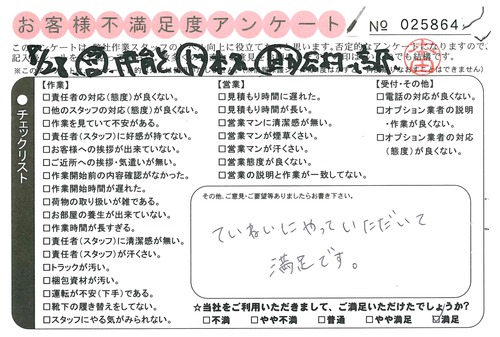 お客様不満足度アンケート
No 025864
【作業】
□責任者の対応(態度)が良くない。
□他のスタッフの対応(態度)が良くない。
□作業を見ていて不安がある。
□責任者(スタッフ)に好感が持てない。
□お客様への挨拶が出来ていない。
□ご近所への挨拶・気遣いが無い。
□作業開始前の内容確認がなかった。
□作業開始時間が遅れた。
□荷物の取り扱いが雑である。
□お部屋の養生が出来ていない。
□作業時間が長すぎる。
□責任者(スタッフ)に清潔感が無い。
□責任者(スタッフ)が汗くさい。
□トラックが汚い。
□梱包資材が汚い。
□運転が不安(下手)である。
□靴下の履き替えをしてない。
□スタッフにやる気がみられない。
【営業】
□見積もり時間に遅れた。
□見積もり時間が長い。
□営業マンに清潔感が無い。
□営業マンが煙草くさい。
□営業マンが汗くさい。
□営業態度が良くない。
□営業の説明と作業が一致してない。
【受付・その他】
□電話の対応が良くない。
□オプション業者の説明
・作業が良くない。
□オプション業者の対応
(態度)が良くない。
●チェックリスト
その他、ご意見・ご要望等ありましたらお書き下さい。
ていねいにやっていただいて
満足です。
☆当社をご利用いただきまして、ご満足いただけたでしょうか?
□不満 □やや不満 □普通 □やや満足 ☑満足